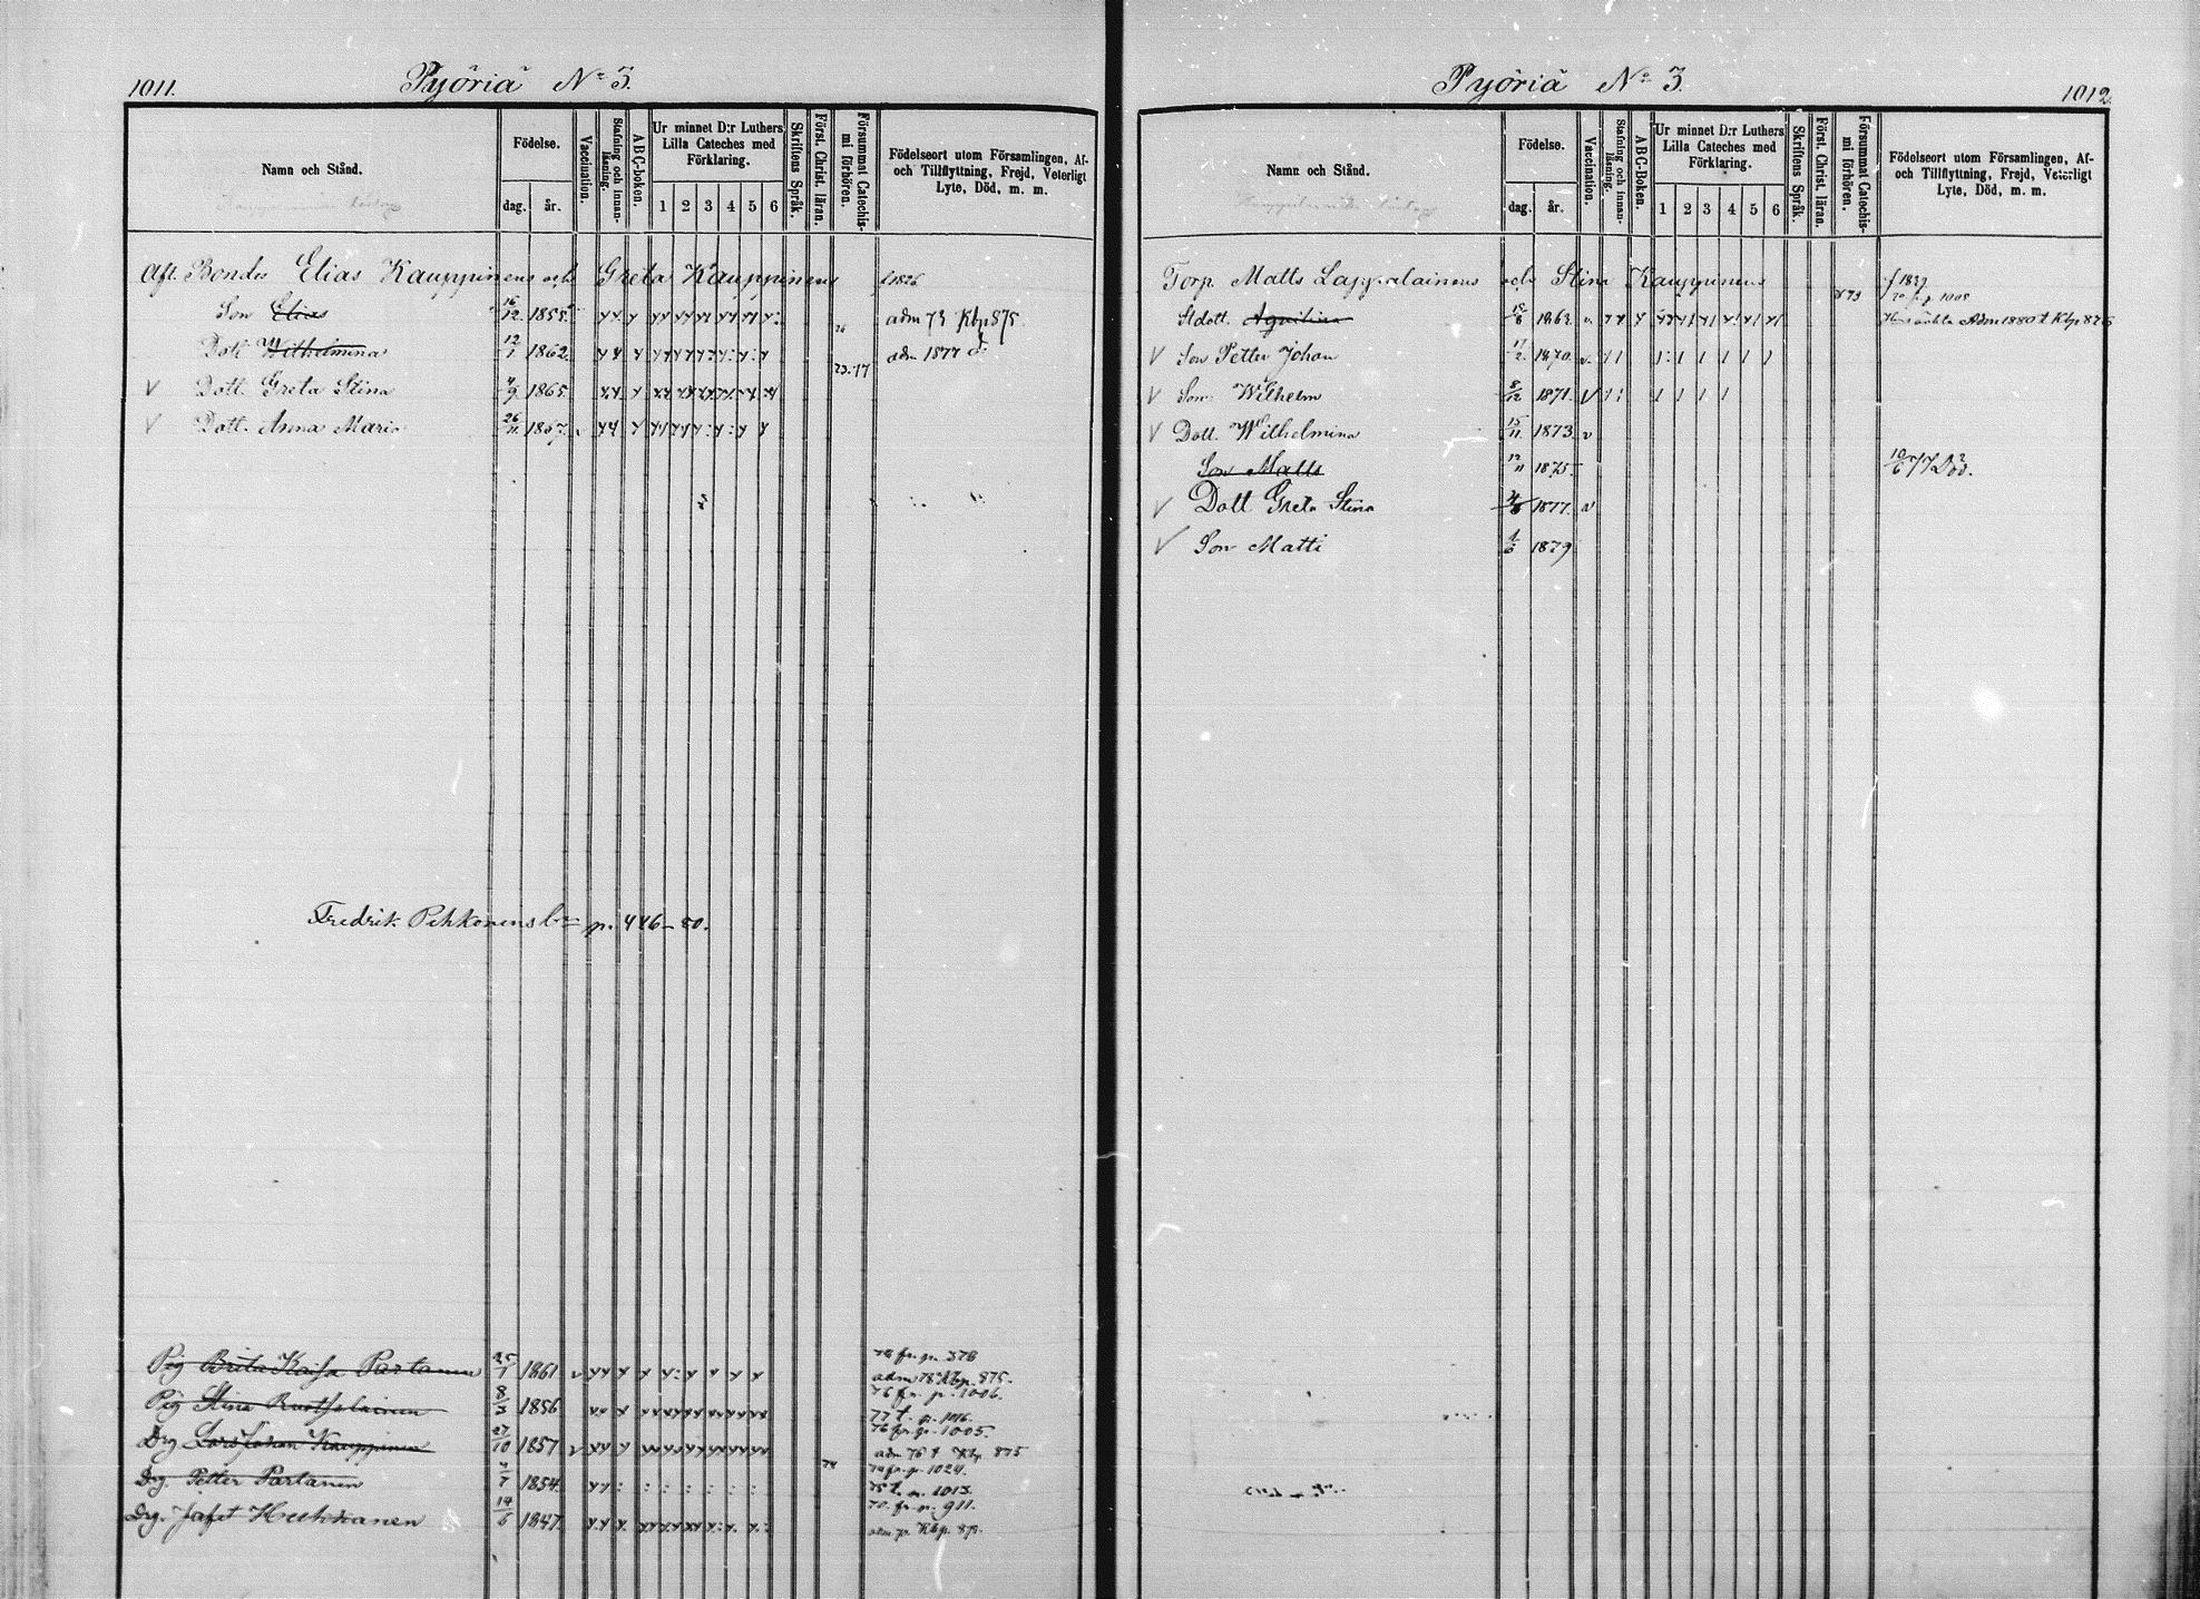 1011.
Pyöriä No 3.
Namn och Stånd.
Födelse.
dag. år.
Vaccination.
Stafning och innanläsning.
A B C-boken.
Ur minnet D:r Luthers Lilla Cateches med Förklaring.
1 2 3 4 5 6
Skriftens Språk.
Först. Christ. läran.
Försummat Catechismi förhören.
Födelseort utom Församlingen, Af- och Tillflyttning, Frejd, Veterligt Lyte, Död, m. m.
Aft. Bonden Elias Kauppinens och Greta Kauppinens f 1826
Son Elias 16/12 1855 adm 73 Kbp 875
Dott Wilhelmina 12/1 1862 23.77 adm 1877 d:o
Dott. Greta Stina 4/9 1865
Dott. Anna Maria 26/11 1867
Fredrik Pehkonens p. 446-50.
Pig Brita Kaisa Partanen 25/1 1861 fr. p. 376
adm 78 Kbp. 875.
Pig Stina Ruotsalainen 8/3 1856 76 fr. p. 1006.
77 t. p. 1016.
Drg Lars Johan Kauppinen 27/10 1857 76 fr. p. 1005.
adm 76 t Kbp 875
Drg. Petter Partanen 4/7 1854 fr. p. 1024.
75 t. p. 1013.
Drg. Jafet Huskkanen 14/6 1847 70. fr. p. 911.
1012
Pyöriä No 3.
Namn och Stånd.
Födelse.
dag. år.
Vaccination.
Stafning och innanläsning.
A B C-boken.
Ur minnet D:r Luthers Lilla Cateches med Förklaring.
1 2 3 4 5 6
Skriftens Språk.
Först. Christ. läran.
Försummat Catechismi förhören.
Födelseort utom Församlingen, Af- och Tillflyttning, Frejd, Veterligt Lyte, Död, m. m.
Torp. Matts Lappalainens och Stina Kauppinens f 1839
fr p 1008
Stdott. Aqvilina 1863 Adm 1880 t Kbp 876
V Son Petter Johan 17/2 1870
V Son Wilhelm 8/12 1871
V Dott. Wilhelmina 15/11 1873
Son Matts 12/11 1875 10/6 77 Död.
V Dott Greta Stina 1877
V Son Matti 1/6 1879